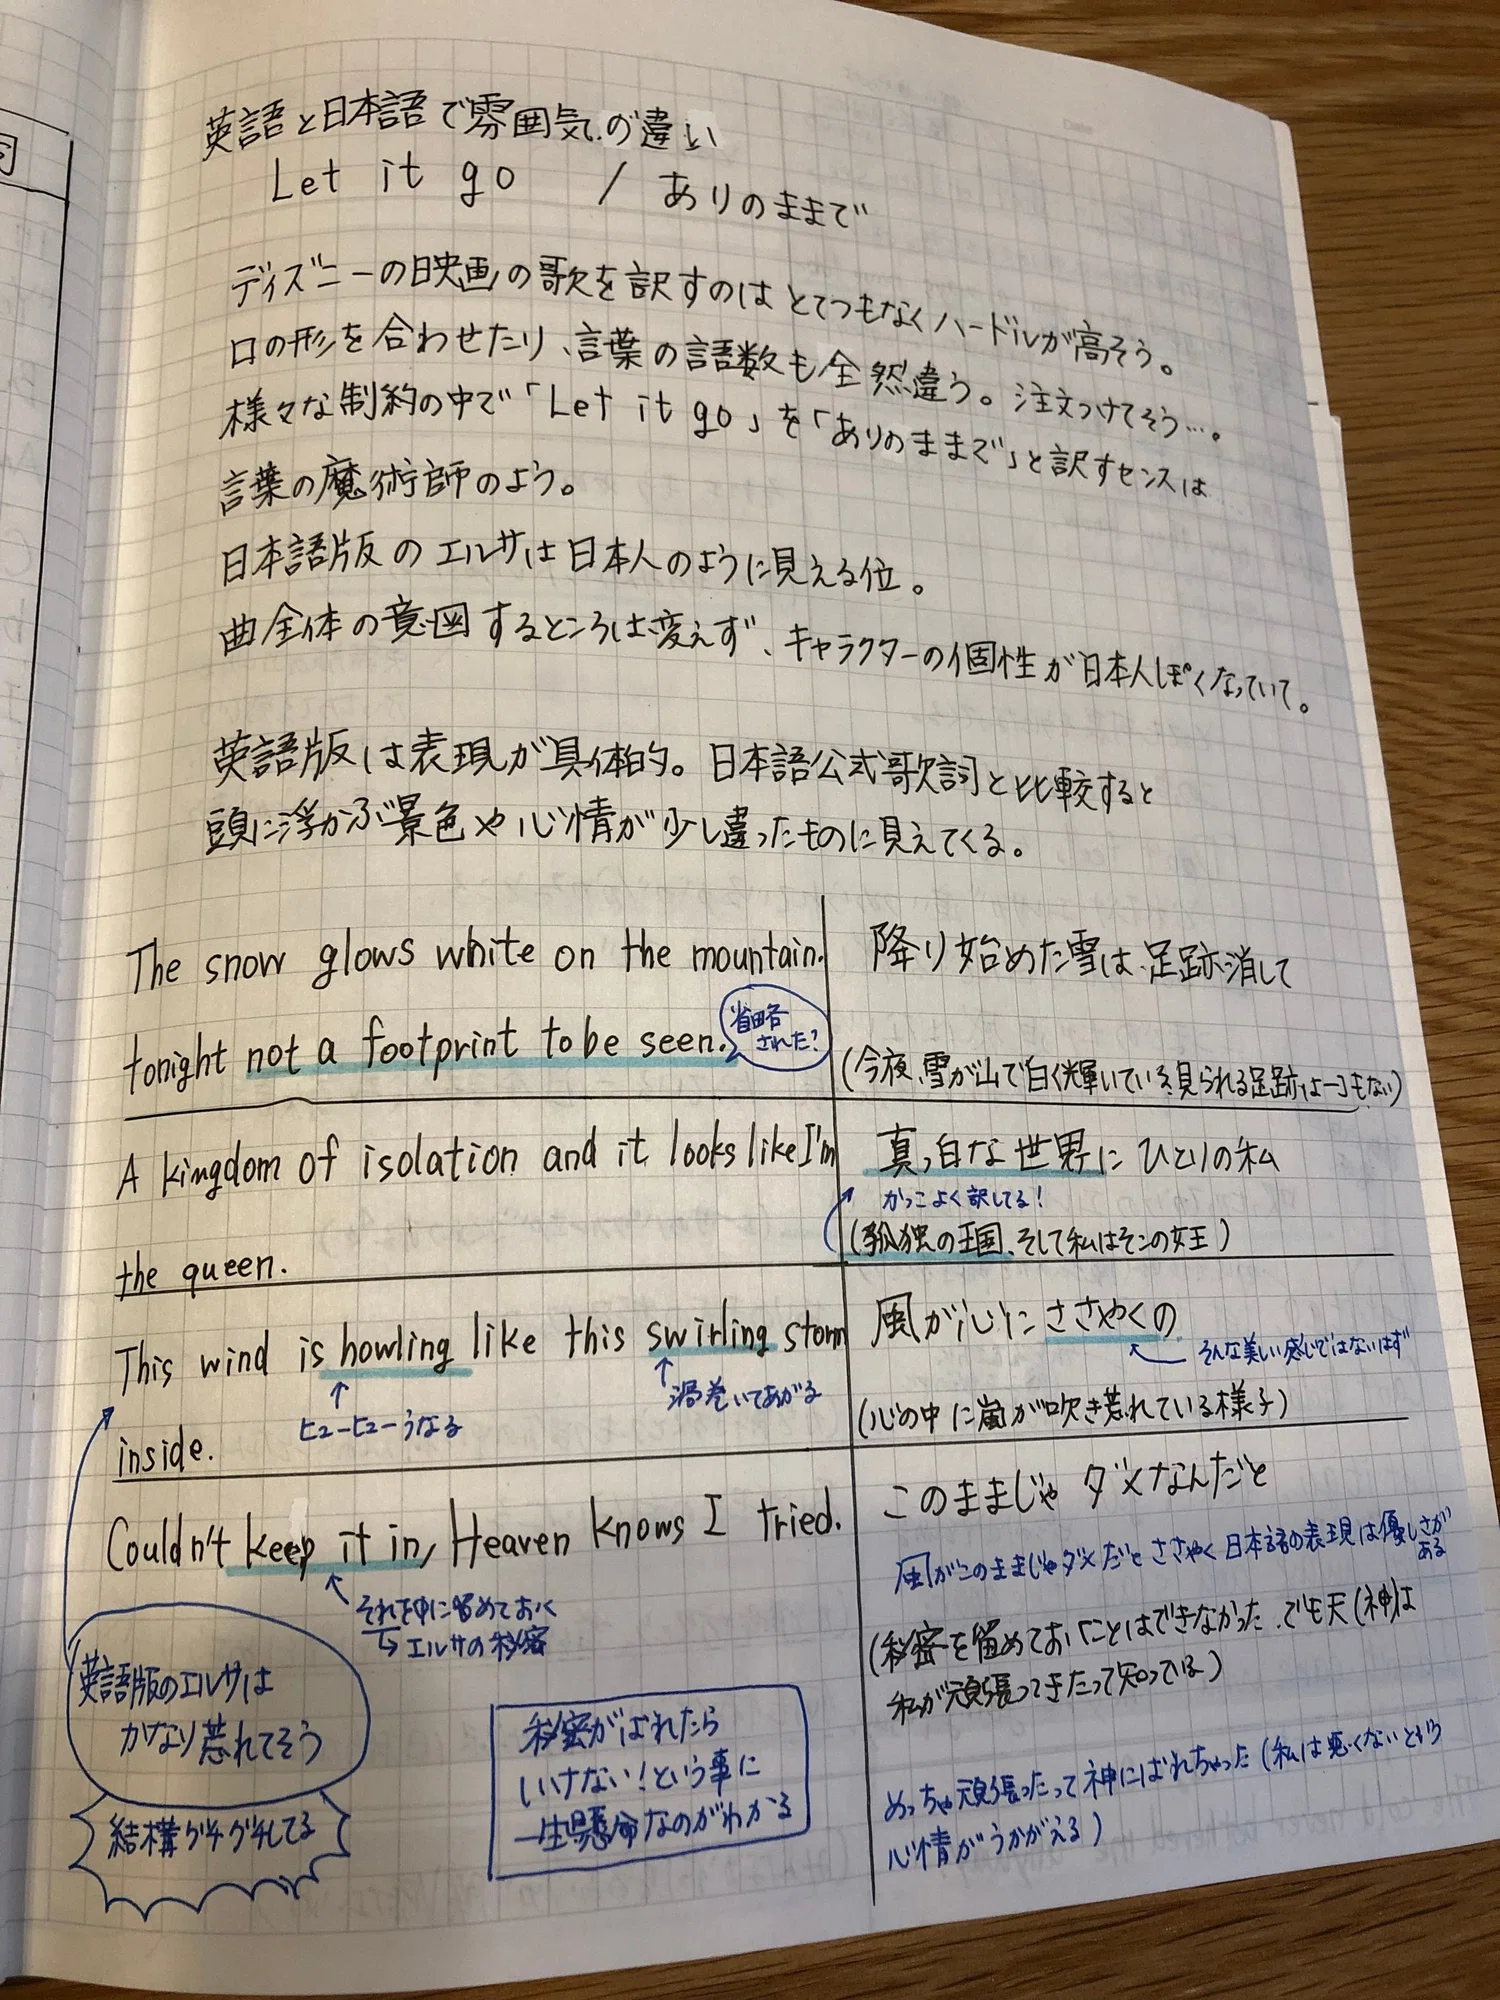 英語と日本語で雰囲気の違い
Let it go / ありのままで
ディズニーの映画の歌を訳すのは とてつもなくハードルが高そう。
口の形を合わせたり、言葉の語数も全然違う。注文つけてそう…。
様々な制約の中で「Let it go」を「ありのままで」と訳すセンスは
言葉の魔術師のよう。
日本語版のエルサは日本人のように見える位。
曲全体の意図するところは変えず、キャラクターの個性が日本人ぽくなっていて。
英語版は表現が具体的。日本語公式歌詞と比較すると
頭に浮かぶ景色や心情が少し違ったものに見えてくる。
The snow glows white on the mountain.
tonight not a footprint to be seen.
省略
された?
降り始めた雪は、足跡消して
(今夜、雪が山で白く輝いている、見られる足跡は一つもない)
A kingdom of isolation and it looks like I'm
the queen.
真っ白な世界に ひとりの私
かっこよく訳してる!
(孤独の王国、そして私はそこの女王)
This wind is howling like this swirling storm
ヒューヒューうなる
渦巻いてあがる
inside.
風が心に ささやくの
そんな美しい感じではないはず
(心の中に嵐が吹き荒れている様子)
Couldn't keep it in, Heaven knows I tried.
それを中に留めておく
エルサの秘密
このままじゃ ダメなんだと
風がこのままじゃダメだと ささやく 日本語の表現は優しさが
ある
(秘密を留めておくことはできなかった、でも天(神)は
私が頑張ってきたって知っている)
めっちゃ頑張ったって神にばれちゃった(私は悪くないという
心情がうかがえる)
英語版のエルサは
かなり荒れてそう
結構グチグチしてる
秘密がばれたら
いけない!という事に
一生懸命なのがわかる